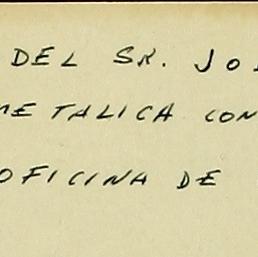 DEL SR. JO
METALICA CON
OFICINA DE